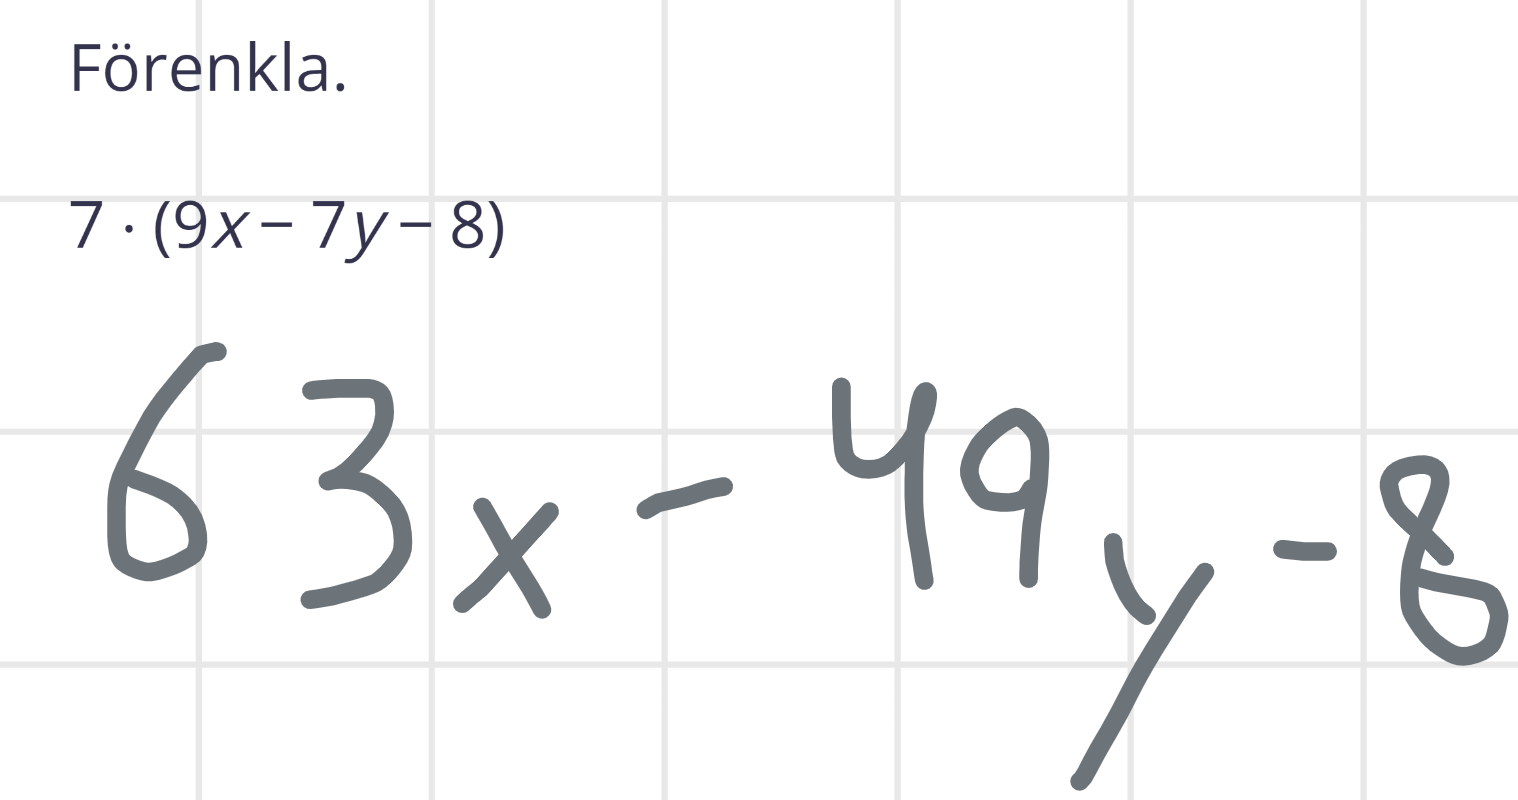 Förenkla.
7 · (9x – 7y – 8)
63x - 49y - 8